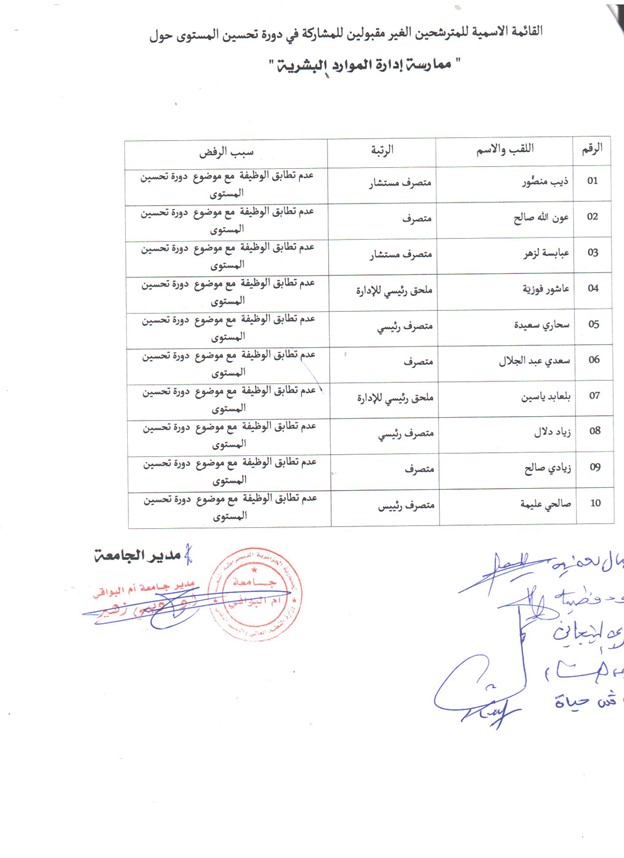 القائمة الاسمية للمترشحين الغير مقبولين للمشاركة في دورة تحسين المستوى حول
" ممارسة إدارة الموارد البشرية "
الرقم اللقب والاسم الرتبة سبب الرفض
01 ذيب منصور متصرف مستشار عدم تطابق الوظيفة مع موضوع دورة تحسين
المستوى
02 عون الله صالح متصرف عدم تطابق الوظيفة مع موضوع دورة تحسين
المستوى
03 عبابسة لزهر متصرف مستشار عدم تطابق الوظيفة مع موضوع دورة تحسين
المستوى
04 عاشور فوزية ملحق رئيسي للإدارة عدم تطابق الوظيفة مع موضوع دورة تحسين
المستوى
05 سحاري سعيدة متصرف رئيسي عدم تطابق الوظيفة مع موضوع دورة تحسين
المستوى
06 سعدي عبد الجلال متصرف عدم تطابق الوظيفة مع موضوع دورة تحسين
المستوى
07 بلعابد ياسين ملحق رئيسي للإدارة عدم تطابق الوظيفة مع موضوع دورة تحسين
المستوى
08 زياد دلال متصرف رئيسي عدم تطابق الوظيفة مع موضوع دورة تحسين
المستوى
09 زيادي صالح متصرف عدم تطابق الوظيفة مع موضوع دورة تحسين
المستوى
10 صالحي عليمة متصرف رئييس عدم تطابق الوظيفة مع موضوع دورة تحسين
المستوى
مدير الجامعة
مدير جامعة أم البواقي
جامعة
أم البواقي
حياة